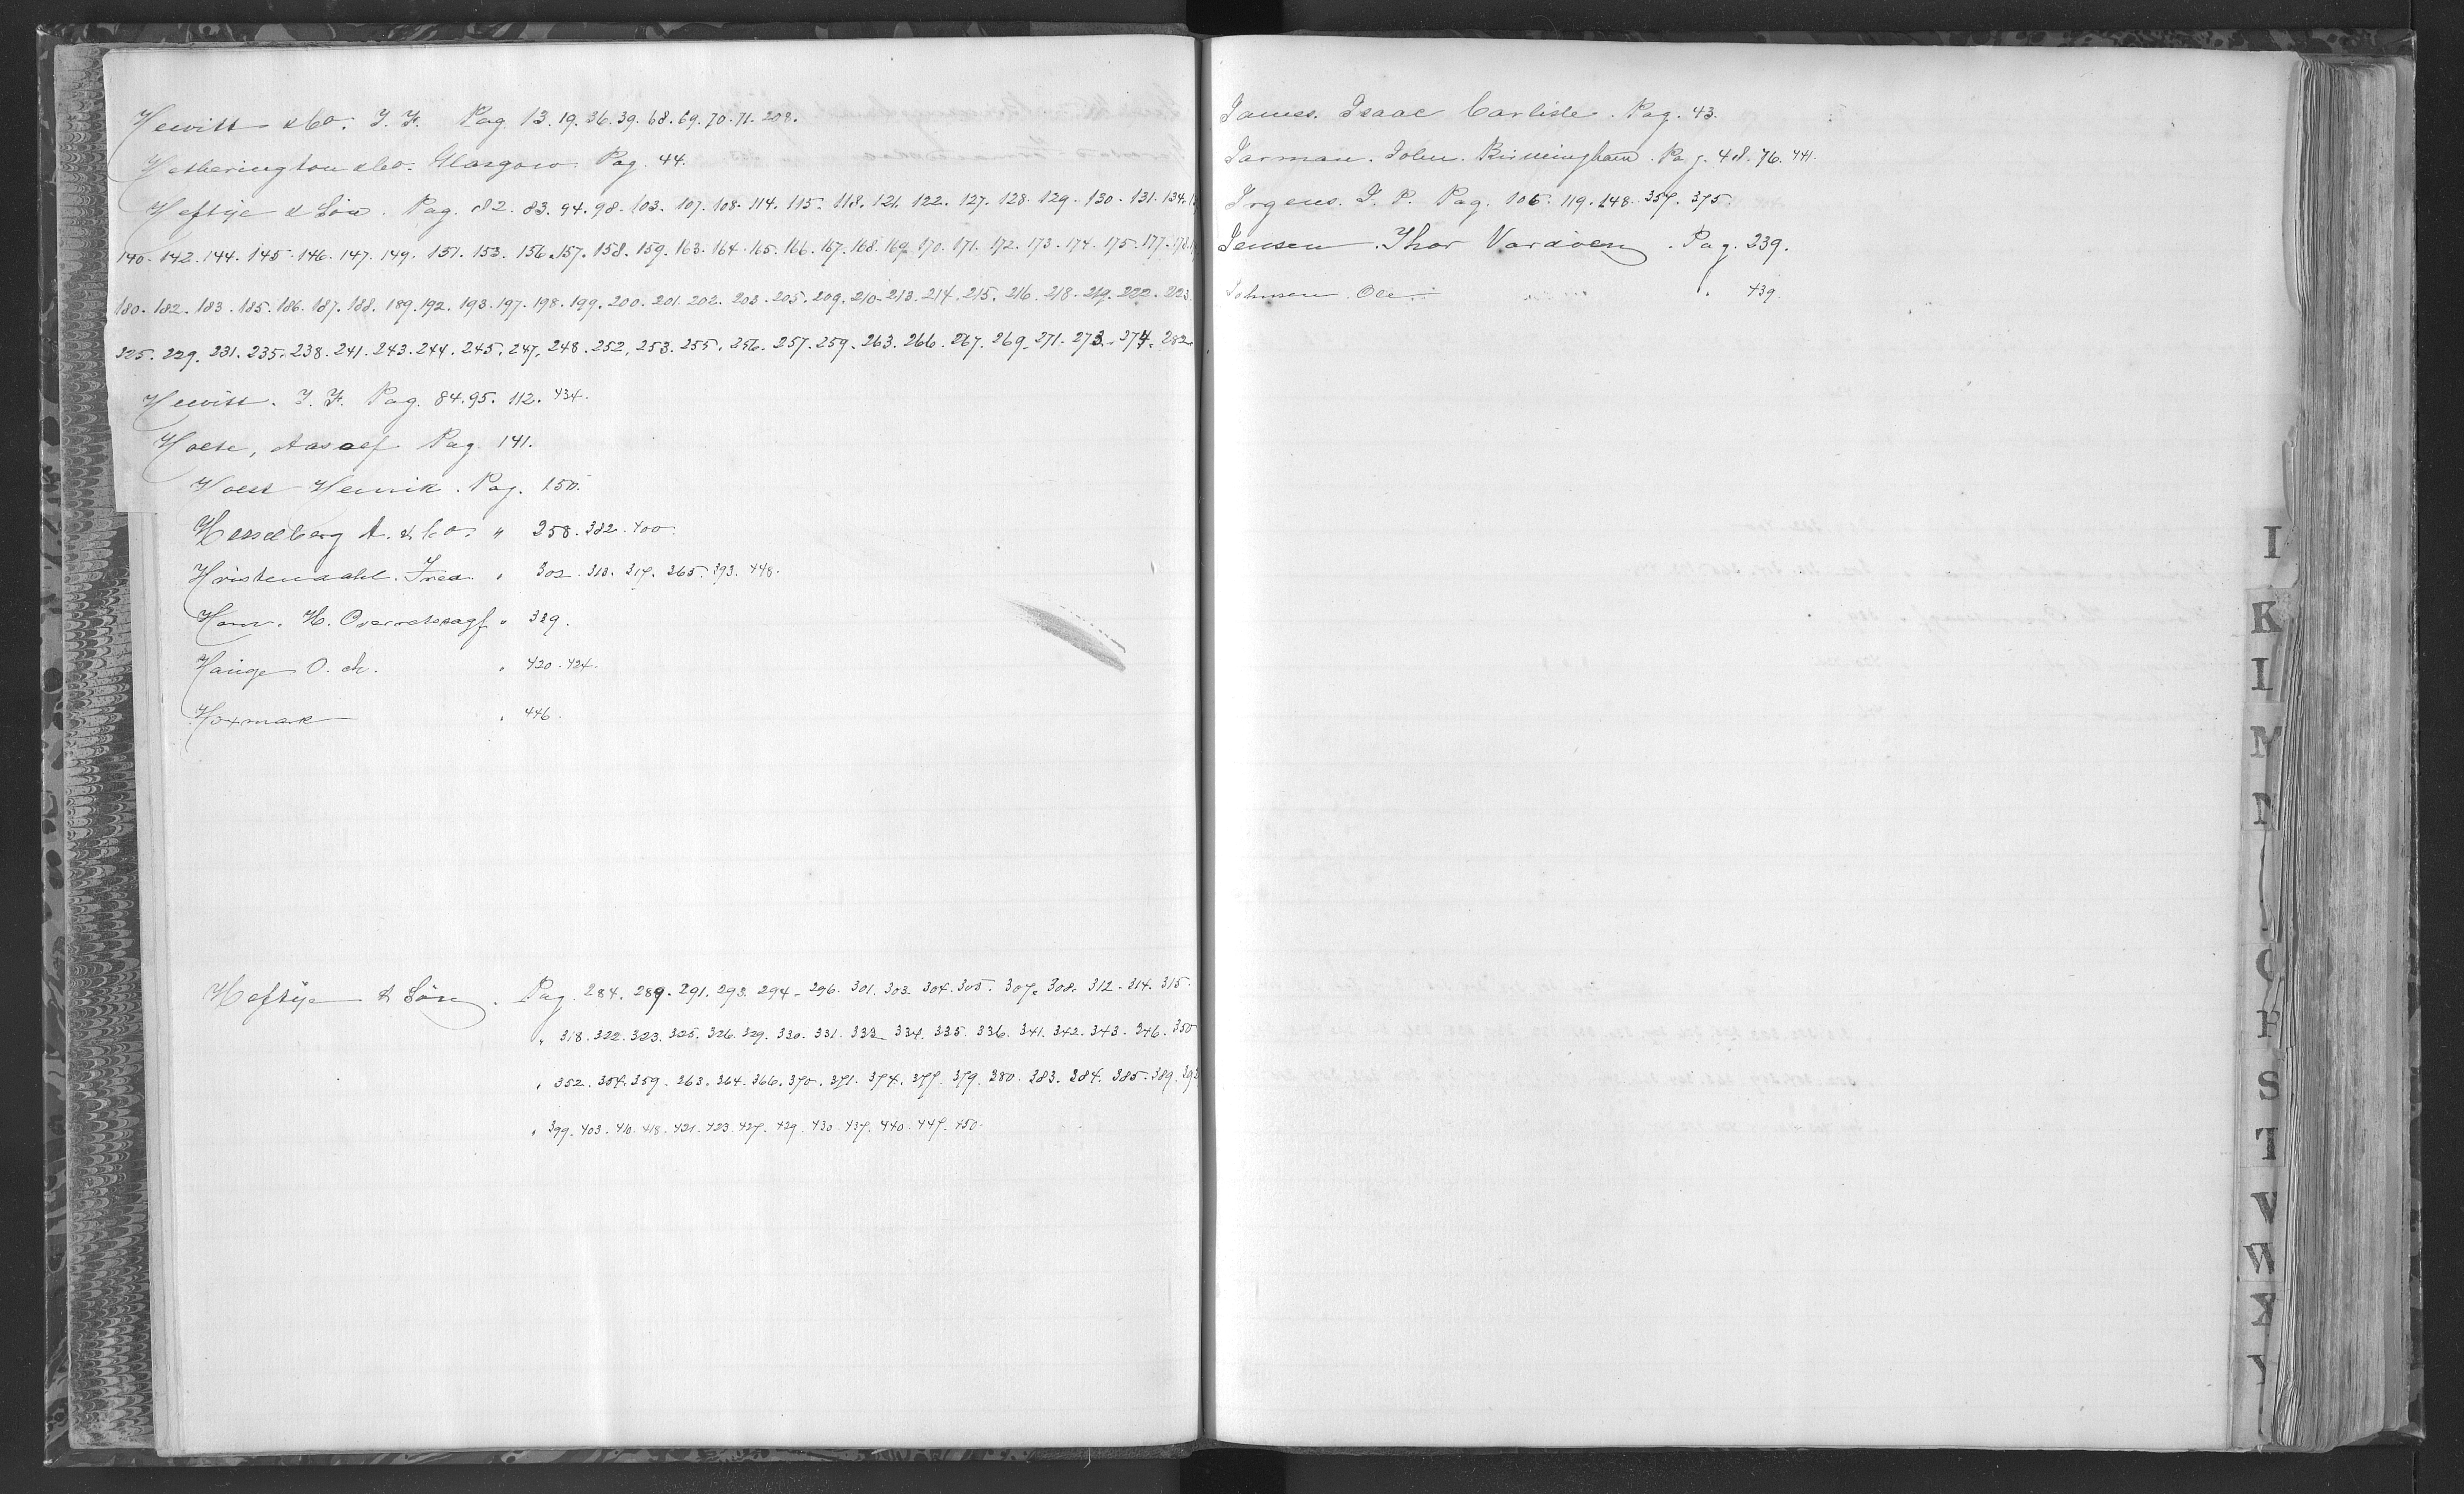 Hewitt & Co. T. F. Pag. 13. 19. 36. 39. 68. 69. 70. 71. 208.
Hetherington & Co. Glasgow. Pag. 44.
Heftije & Sön. Pag. 82. 83. 94. 98. 103. 107. 108. 114. 115. 118. 121. 122. 127. 128. 129. 130. 131. 134.
140. 142. 144. 145. 146. 147. 149. 151. 153. 156. 157. 158. 159. 163. 164. 165. 166. 167. 168. 169. 170. 171. 172. 173. 174. 175. 177. 178.
180. 182. 183. 185. 186. 187. 188. 189. 192. 193. 197. 198. 199. 200. 201. 202. 203. 205. 209. 210. 213. 214. 215. 216. 218. 219. 222. 223.
225. 229. 231. 235. 238. 241. 243. 244. 245. 247. 248. 252. 253. 255. 256. 257. 259. 263. 266. 267. 269. 271. 273. 274. 282.
Hewitt. T. F. Pag. 84. 95. 112. 434.
Holte, Aasolf Pag. 141.
Holst Henrik. Pag. 150.
Hesselberg A. & Co. " 258. 382. 400.
Hristendahl. Fred. " 302. 313. 317. 365. 393. 448.
Horn. H. Overretssagf " 329.
Hauge O. Ch. " 420. 424.
Hoxmark " 446.
Heftije & Sön. Pag. 284. 289. 291. 293. 294. 296. 301. 303. 304. 305. 307. 308. 312. 314. 315.
" 318. 322. 323. 325. 326. 329. 330. 331. 333. 334. 335. 336. 341. 342. 343. 346. 350
" 352. 354. 359. 363. 364. 366. 370. 371. 374. 377. 379. 380. 383. 384. 385. 389. 392
" 399. 403. 416. 418. 421. 423. 427. 429. 430. 437. 440. 447. 450.
James. Isaac Carlisle. Pag. 43.
Jarman. John. Birmingham. Pag. 48. 76. 441.
Irgens. J. P. Pag. 106. 119. 148. 357. 375.
Jensen. Thor Vardöen. Pag. 239.
Johnsen. Ole. " 439.
I
K
L
M
N
O
P
S
T
V
W
X
Y